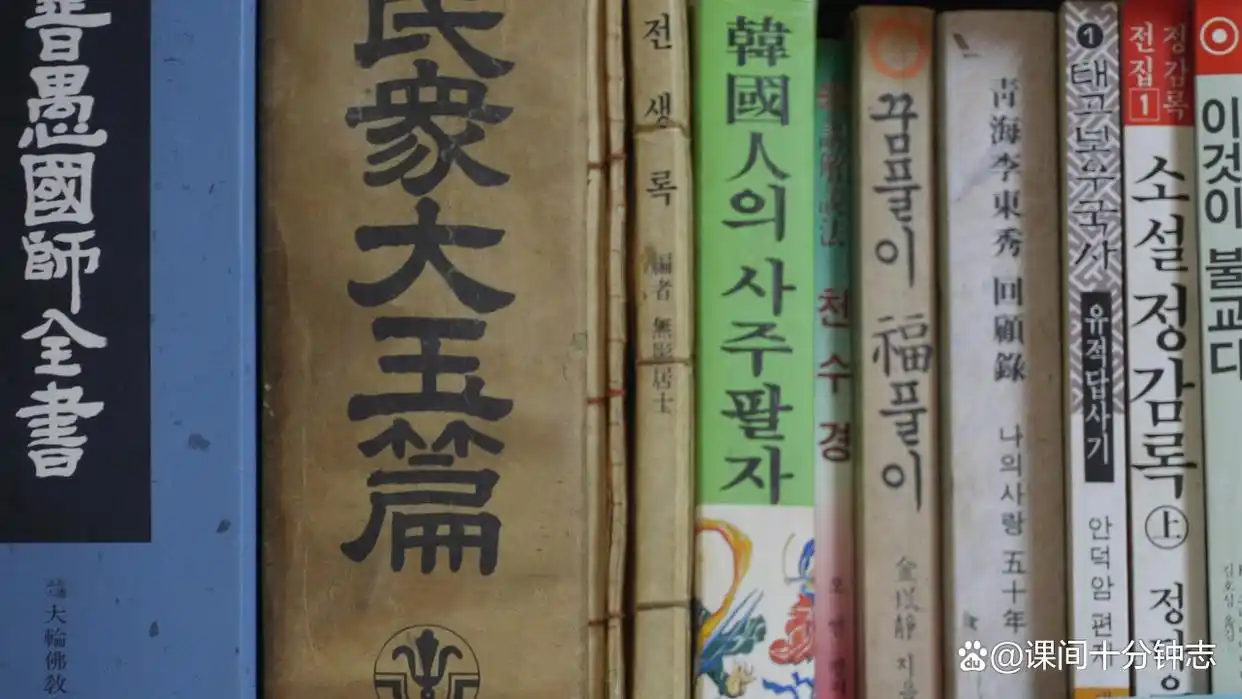 普愚國師全書
大輪佛敎
民衆大玉篇
전생록
編者 無影居士
韓國人의 사주팔자
천수경
꿈풀이 福풀이
靑海李東秀 回顧錄
나의사랑 五十年
1
태고보우국사
유적답사기
안덕암 편
정감록
전집 1
소설 정감록 上
이것이 불교다
@课间十分钟志